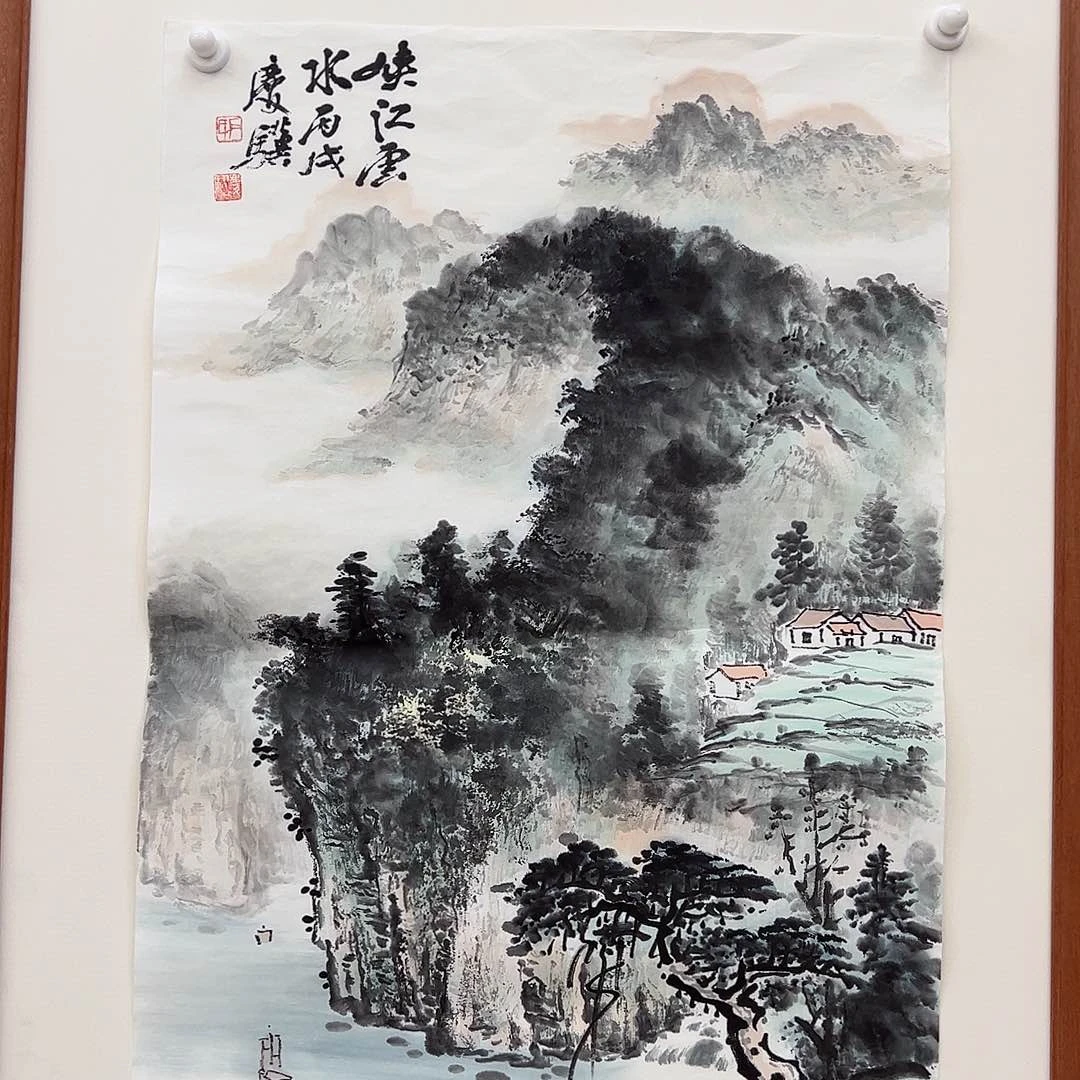 峡江云
水丙戌
庆骥